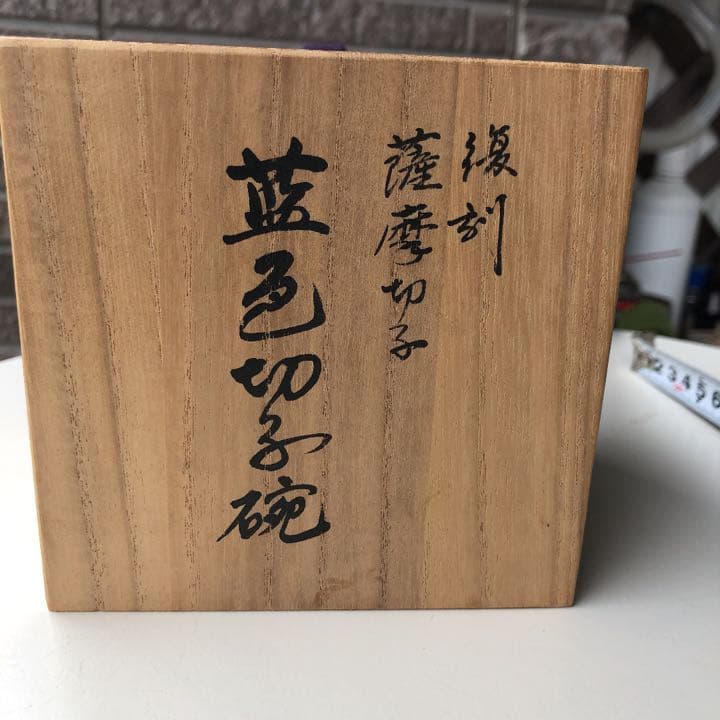 復刻
薩摩切子
藍色切子碗
2 3 4 5 6